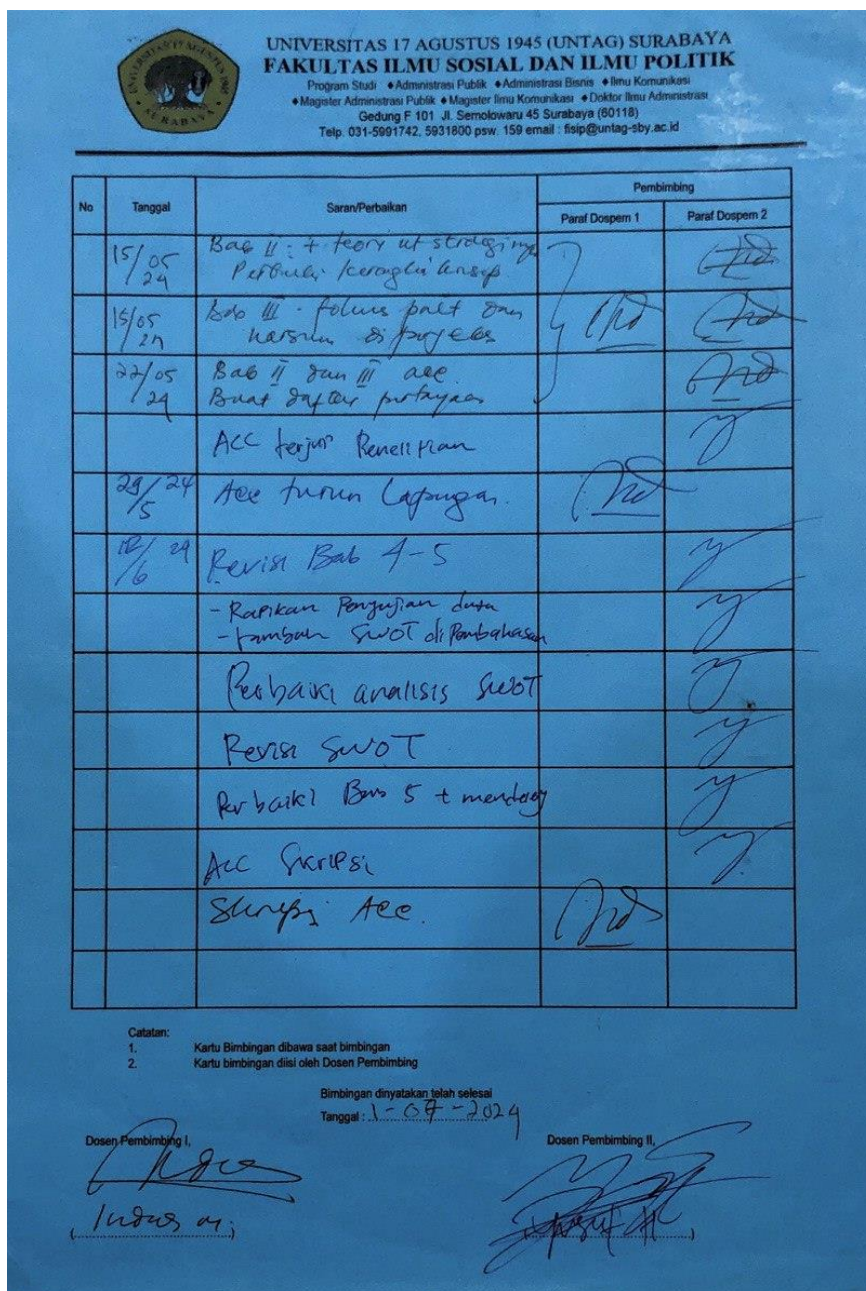 UNIVERSITAS 17 AGUSTUS 1945 (UNTAG) SURABAYA
FAKULTAS ILMU SOSIAL DAN ILMU POLITIK
Program Studi ♦Administrasi Publik ♦Administrasi Bisnis ♦Ilmu Komunikasi
♦Magister Administrasi Publik ♦Magister Ilmu Komunikasi ♦Doktor Ilmu Administrasi
Gedung F 101 Jl. Semolowaru 45 Surabaya (60118)
Telp. 031-5991742, 5931800 psw. 159 email : fisip@untag-sby.ac.id
No Tanggal Saran/Perbaikan Pembimbing
Paraf Dospem 1 Paraf Dospem 2
15/05 24 Bab II : + teory
15/05 Bab III - fokus
22/05 24 Bab II dan III acc
Buat daftar
ACC Penelitian
29/5 24 Acc turun Lapangan.
/6 24 Revisi Bab 4-5
- Rapikan Pengujian data
- tambah SWOT di Pembahasan
Perbaiki analisis SWOT
Revisi SWOT
Perbaiki Bab 5 +
ACC Skripsi
Skripsi Acc.
Catatan:
1. Kartu Bimbingan dibawa saat bimbingan
2. Kartu bimbingan diisi oleh Dosen Pembimbing
Bimbingan dinyatakan telah selesai
Tanggal : 1-07-2024
Dosen Pembimbing I, Dosen Pembimbing II,